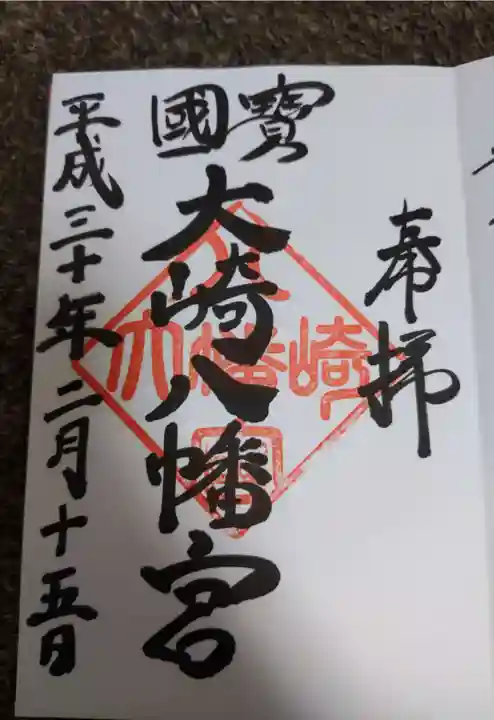 奉拝
國寶
大崎八幡宮
平成三十年二月十五日
大崎八幡宮